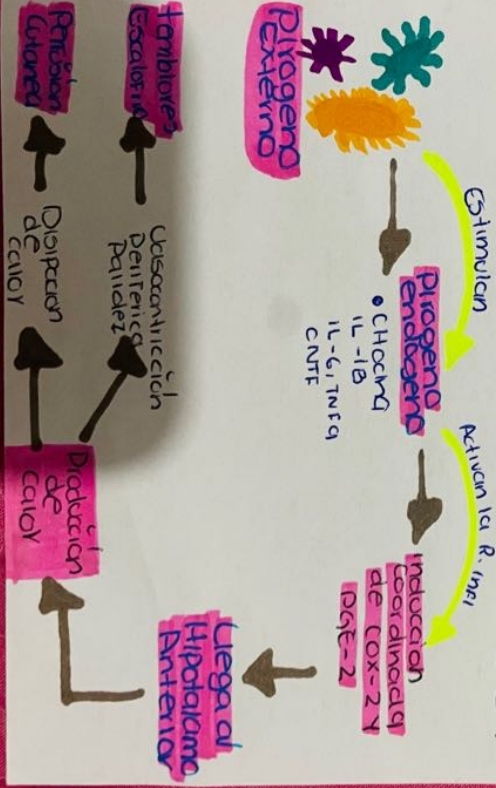 Pirogeno
Externo
Estimulan
Pirogeno
endogeno
• Citocina
IL-1B
IL-6, TNFα
CNTF
Activan la R. infl
Inducción
coordinada
de COX-2 y
PGE-2
Llega al
Hipotalamo
Anterior
Producción
de
calor
Vasocontricción
Periferica
Palidez
temblores
Escalofrio
Disipación
de
calor
Perdición
Cutanea